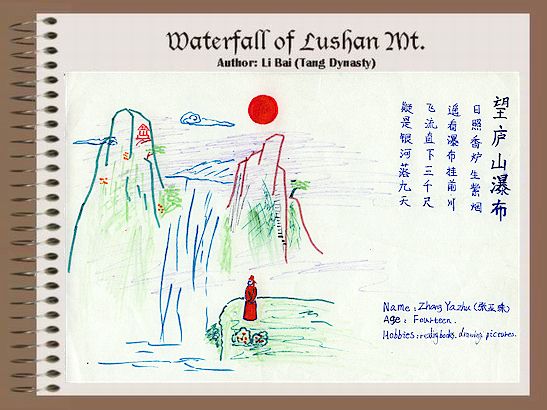 Waterfall of Lushan Mt.
Author: Li Bai (Tang Dynasty)
望庐山瀑布
日照香炉生紫烟
遥看瀑布挂前川
飞流直下三千尺
疑是银河落九天
Name : Zhang Yazhu (张亚珠)
Age : Fourteen.
Hobbies : reding books. drawing pictures.